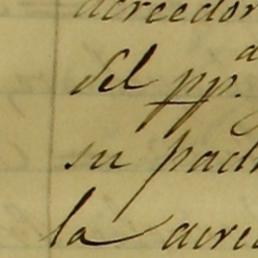 acreedor
del pp.
su pad
la acre